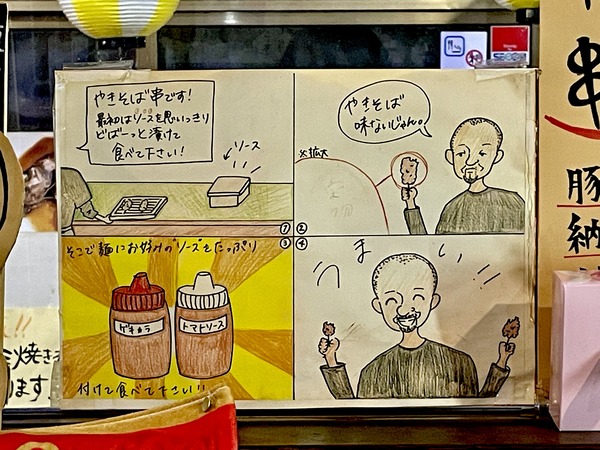 やきそば串です!
最初はソースを思いっきり
どばーっと漬けて
食べて下さい!
ソース
①
②
やきそば
味ないじゃん。
※拡大
③
そこで麺にお好みのソースをたっぷり
ゲキカラ
トマトソース
付けて食べて下さい!!
④
うまい!!
串
豚
納